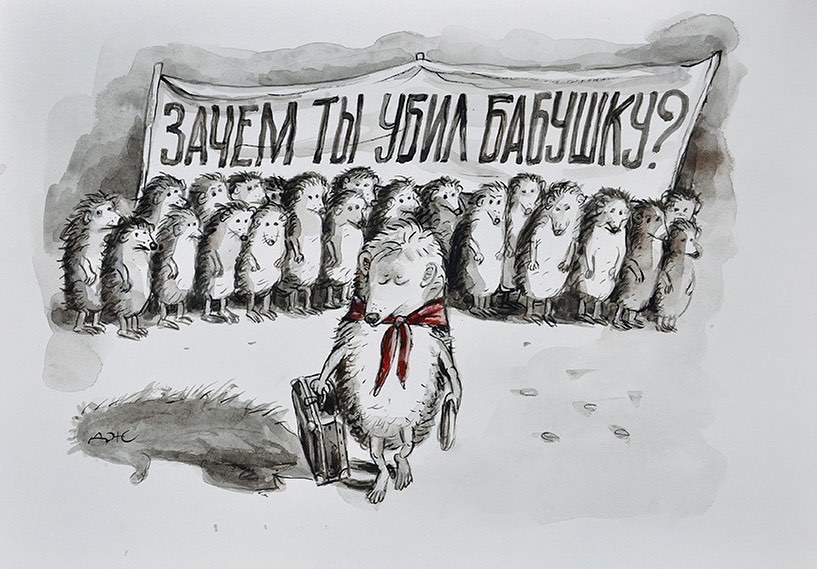 ЗАЧЕМ ТЫ УБИЛ БАБУШКУ?
ДЖ